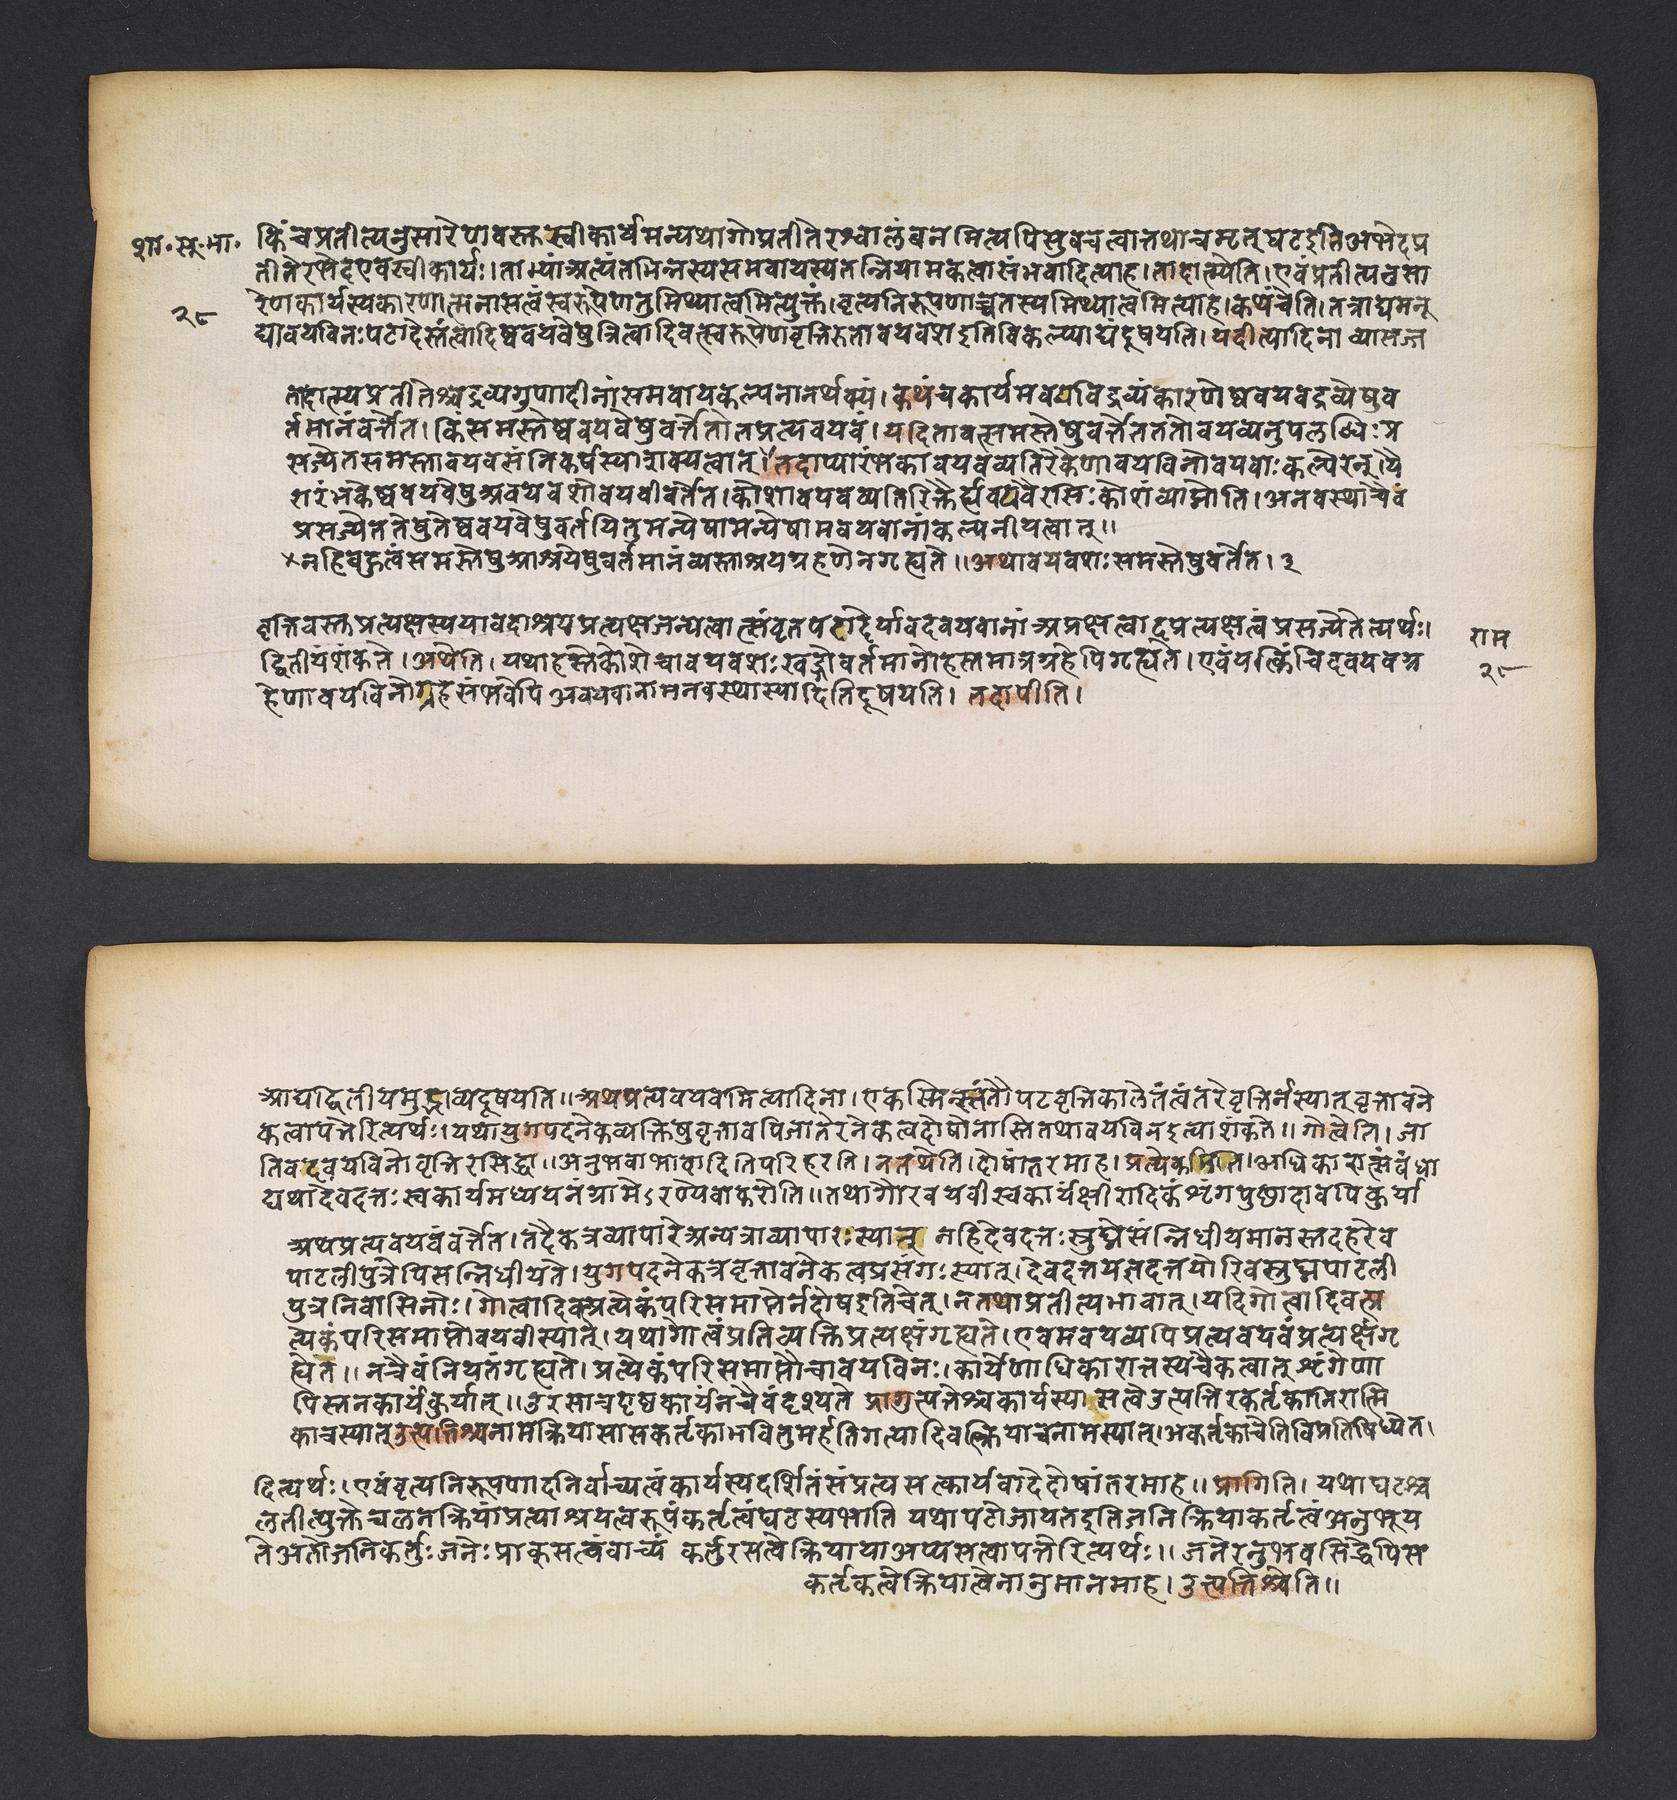 शा॰ सू॰ भा॰
२८
किंचप्रतीत्यनुसारेणवस्तुस्वीकार्यमन्यथागोप्रतीतेरश्वालंबनमित्यपिसुवचत्वात्तथाचमृत्घटइतिअभेदप्र
तीतेरभेदएवस्वीकार्यः।ताभ्यांअत्यंतभिन्नस्यसमवायस्यतन्नियामकत्वासंभवादित्याह।तादात्म्येति।एवंप्रतीत्यनुसा
रेणकार्यस्यकारणात्मनासत्वंस्वरूपेणतुमिथ्यात्वमित्युक्तं।वृत्यनिरूपणाच्चतस्यमिथ्यात्वमित्याह।कथंचेति।तत्राद्यमनू
द्यावयविनःपटादेस्तंत्वादिष्ववयवेषुत्रित्वादिवत्स्वरूपेणवृत्तिरुतावयवशइतिविकल्प्याद्यंदूषयति।यदीत्यादिना व्यासज्ज
तादात्म्यप्रतीतेश्चद्रव्यगुणादीनांसमवायकल्पनानर्थक्यं।कथंचकार्यमवयविद्रव्यंकारणेष्ववयवद्रव्येषुव
र्तमानंवर्त्तेत।किंसमस्तेष्ववयवेषुवर्त्तेतोतप्रत्यवयवं।यदितावत्समस्तेषुवर्त्तेतततोवयव्यनुपलब्धिःप्र
सज्येतसमस्तावयवसंनिकर्षस्याशक्यत्वात्।तदाप्यारंभकावयवव्यतिरेकेणावयविनोवयवाःकल्पेरन्।यै
रारंभकेष्ववयवेषुअवयवशोवयवीवर्तेत।कोशावयवव्यतिरिक्तैर्ह्यवयवैरसिःकोशंव्याप्नोति।अनवस्थाचैवं
प्रसज्येततेषुतेष्ववयवेषुवर्तयितुमन्येषामन्येषामवयवानांकल्पनीयत्वात्॥
×नहिबहुत्वंसमस्तेषुआश्रयेषुवर्तमानंव्यस्ताश्रयग्रहणेनगृह्यते॥अथावयवशःसमस्तेषुवर्तेत।३
वृत्तिवस्तुप्रत्यक्षस्ययावदाश्रयप्रत्यक्षजन्यत्वात्संवृतपटादेर्यावदवयवानां अप्रक्षत्वादप्रत्यक्षत्वं प्रसज्येतेत्यर्थः।
द्वितीयंशंकते।अथेति।यथाहस्तेकोशेचावयवशःखड्गोवर्तमानोहस्तमात्रग्रहेपिगृह्यते।एवंयत्किंचिदवयवग्र
हेणावयविनोग्रहसंभवेपि अवयवानामनवस्थास्यादितिदूषयति। तदापीति।
राम
२८
आद्यद्वितीयमुद्भाव्यदूषयति॥अथप्रत्यवयवमित्यादिना।एकस्मिन्तंतौपटवृत्तिकालेतंत्वंतरेवृत्तिर्नस्यात्वृत्तावने
कत्वापत्तेरित्यर्थः।यथायुगपदनेकव्यक्तिषुवृत्तावपिजातेरनेकत्वदोषोनास्तितथावयविनइत्याशंकते॥गोत्वेति।जा
तिवदवयविनोवृत्तिरसिद्धा॥अनुभवाभावादितिपरिहरति।नतथेति।दोषांतरमाह।प्रत्येकमिति।अधिकारात्संबंधा
द्यथादेवदत्तःस्वकार्यमध्ययनंग्रामेऽरण्येवाकरोति॥तथागौरवयवीस्वकार्यंक्षीरादिकंशृंगपुछादावपिकुर्या
अथप्रत्यवयवंवर्त्तेत।तदैकत्रव्यापारेअन्यत्राव्यापारःस्यात् नहिदेवदत्तःस्त्रुघ्नेसंनिधीयमानस्तदहरेव
पाटलीपुत्रेपिसन्निधीयते।युगपदनेकत्रवृत्तावनेकत्वप्रसंगःस्यात्।देवदत्तयज्ञदत्तयोरिवस्त्रुघ्नपाटली
पुत्रनिवासिनोः।गोत्वादिवत्प्रत्येकंपरिसमाप्तेर्नदोषइतिचेत्।नतथाप्रतीत्यभावात्।यदिगोत्वादिवत्प्र
त्येकंपरिसमाप्तोवयवीस्यात्।यथागोत्वंप्रतिव्यक्तिप्रत्यक्षंगृह्यते।एवमवयव्यपिप्रत्यवयवंप्रत्यक्षंगृ
ह्येत॥नचैवंनियतंगृह्यते।प्रत्येकंपरिसमाप्तौचावयविनः।कार्येणाधिकारात्तस्यचैकत्वात्शृंगेणा
पिस्तनकार्यंकुर्यात्॥उरसाचपृष्ठकार्यंनचैवंदृश्यते प्रागुत्पत्तेश्चकार्यस्यासत्वेउत्पत्तिरकर्तृकानिरात्मि
काचस्यात्उत्पत्तिश्चनामक्रियासासकर्तृकाभवितुमर्हतिगत्यादिवत्क्रियाचनामस्यात्।अकर्तृकाचेतिविप्रतिषिध्येत।
दित्यर्थः।एवंवृत्यनिरूपणादनिर्वाच्यत्वंकार्यस्यदर्शितंसंप्रत्यसत्कार्यवादेदोषांतरमाह॥प्रागिति।यथाघटश्च
लतीत्युक्तेचलनक्रियांप्रत्याश्रयत्वरूपंकर्तृत्वंघटस्यभाति यथापटोजायतइतिजनिक्रियाकर्तृत्वंअनुभूय
तेअतोजनिकर्तुःजनेःप्राक्सत्वंवाच्यं कर्तुरसत्वेक्रियायाअप्यसत्वापत्तेरित्यर्थः॥जनेरनुभवसिद्धेपिस
कर्तृकत्वेक्रियात्वेनानुमानमाह।उत्पत्तिश्चेति॥